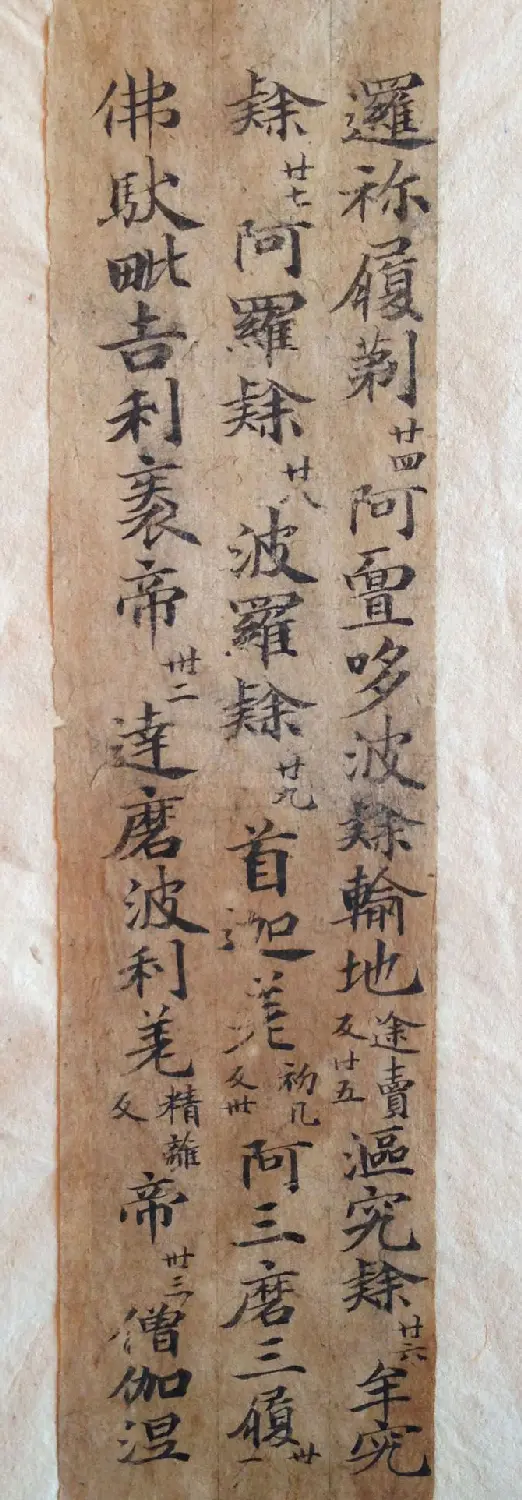 邏祢履剃廿四阿亶哆波隸輸地途賣反廿五漚究隸廿六牟究
隸廿七阿羅隸廿八波羅隸廿九首迦差初几反卅阿三磨三履卅一
佛馱毗吉利袠帝卅二達磨波利差精離反帝卅三僧伽涅